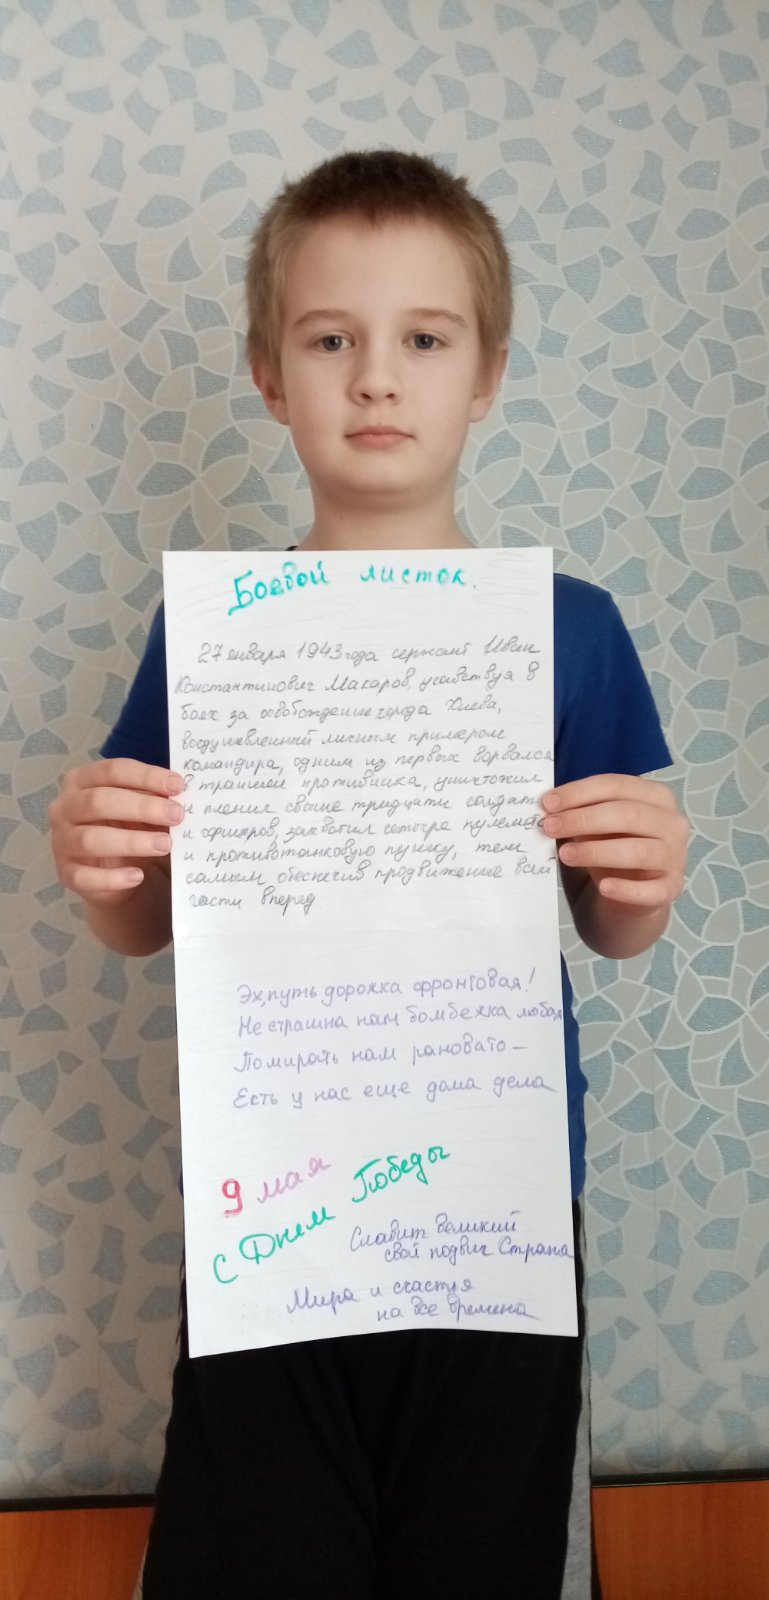 Боевой листок.
27 января 1943 года сержант Иван
Константинович Макаров, участвуя в
боях за освобождение города Киева,
воодушевленный личным примером
командира, одним из первых ворвался
в траншеи противника, уничтожил
и пленил свыше тридцати солдат
и офицеров, захватил четыре пулемета
и противотанковую пушку, тем
самым обеспечив продвижение всей
части вперед
Эх, путь дорожка фронтовая!
Не страшна нам бомбежка любая
Помирать нам рановато –
Есть у нас еще дома дела
9 мая
С Днем Победы
Славит великий
свой подвиг Страна
Мира и счастья
на все времена